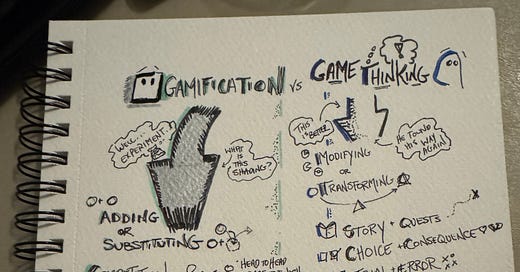 GAMIFICATION vs GAME THINKING
WELL...
EXPERIMENT
WHAT
IS
THIS
SHADING?
ADDING
OR
SUBSTITUTING
HEAD TO HEAD
THIS
IS BETTER
HE FOUND
HIS WAY
AGAIN
MODIFYING
OR
TRANSFORMING
STORY + QUESTS
CHOICE + CONSEQUENCE
+ ERROR